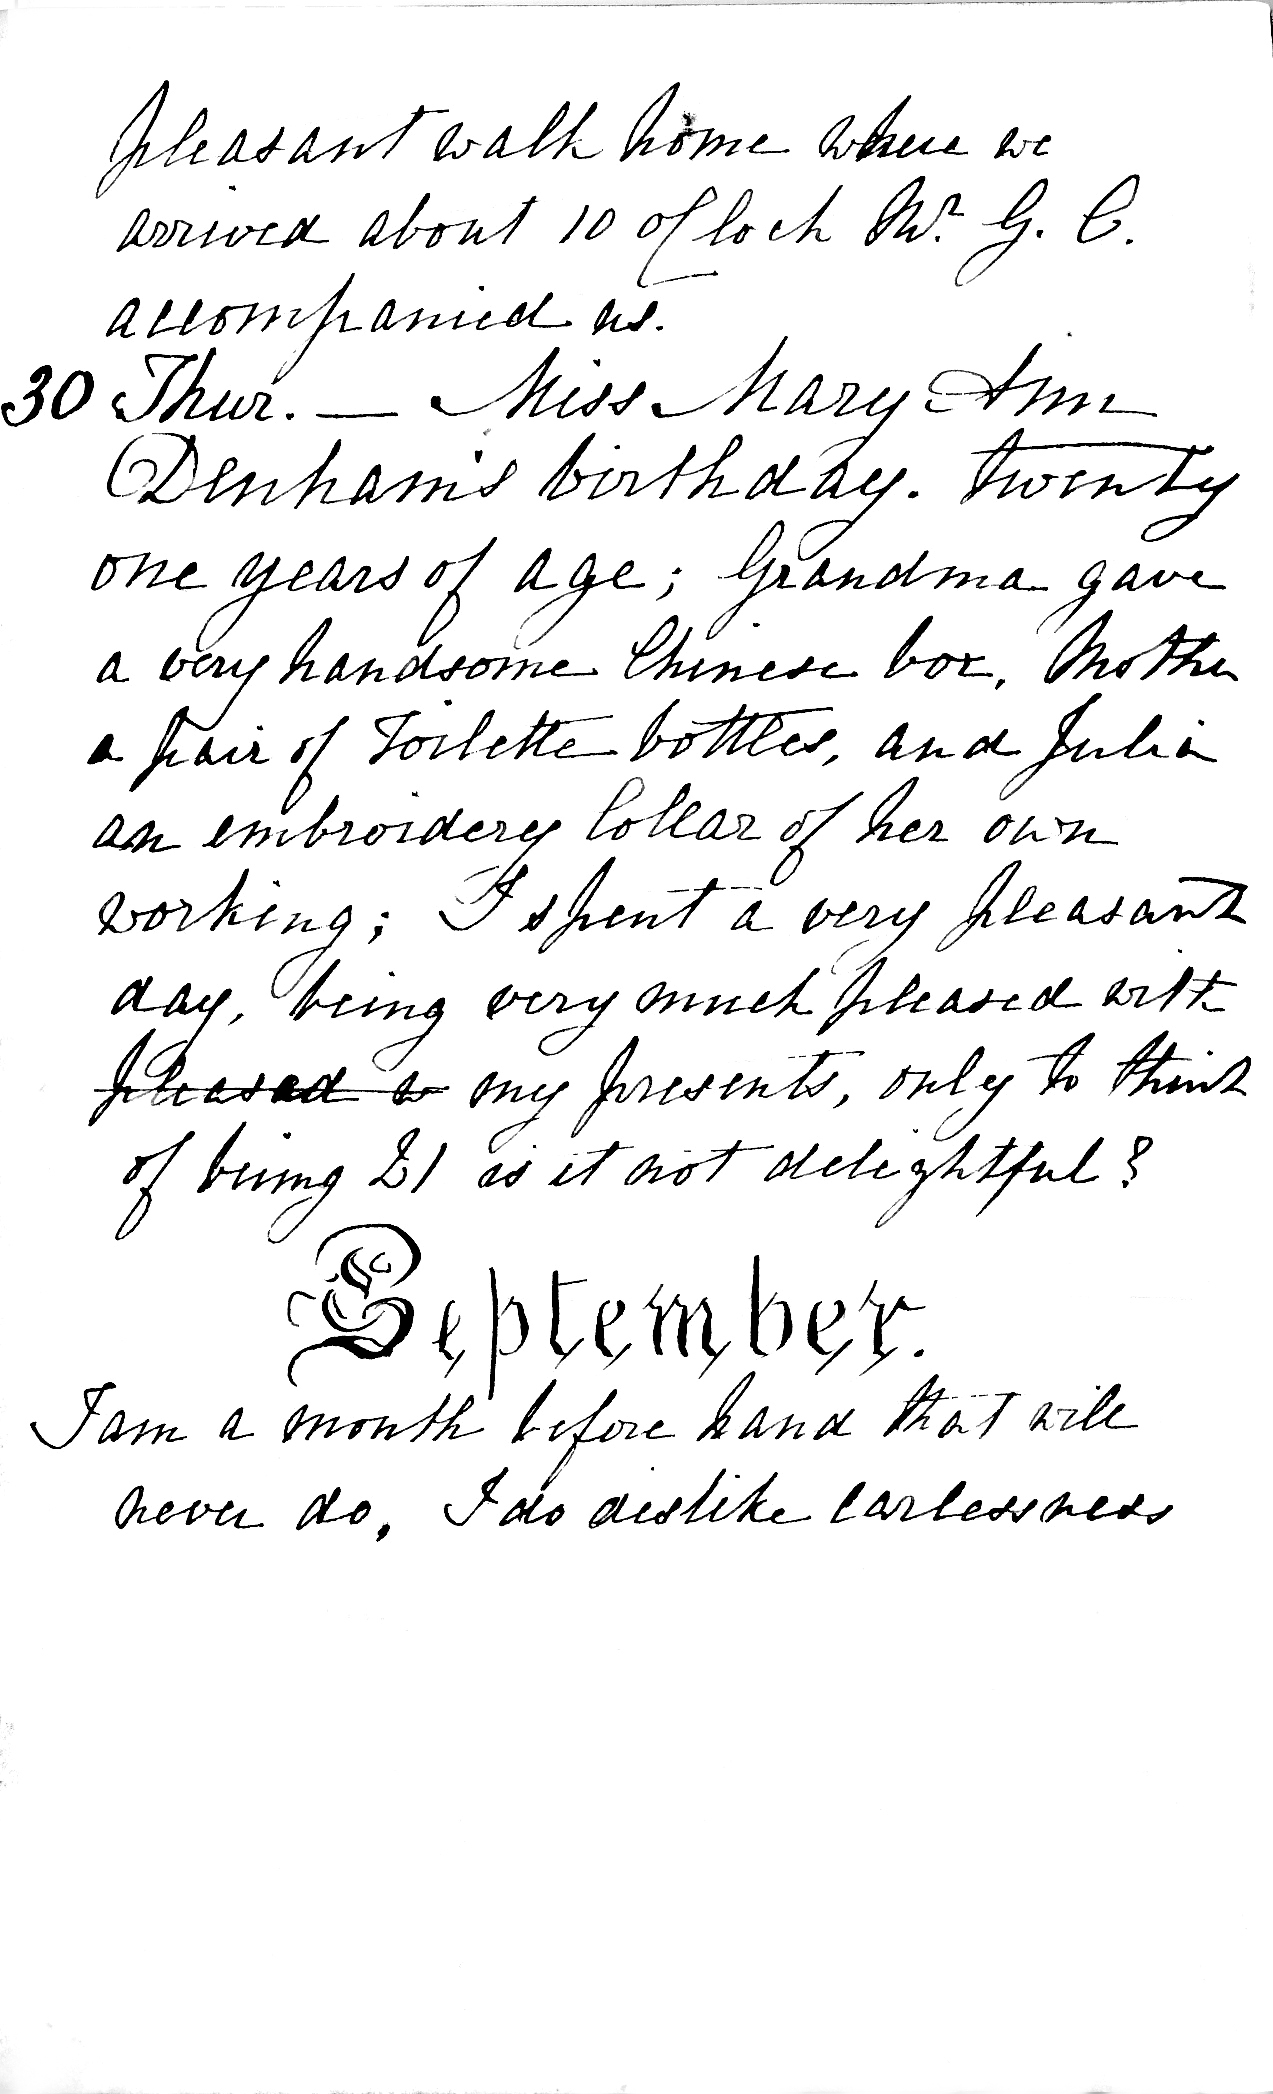 pleasant walk home where we
arrived about 10 of clock Mr. G. C.
accompanied us.
30 Thur. — Miss Mary Ann
Denham's birthday. twenty
one years of age; Grandma gave
a very handsome Chinese box, Mother
a pair of Toilette bottles, and Julia
an embroidery Collar of her own
working; I spent a very pleasant
day, being very much pleased with
pleased w my presents, only to think
of being 21 is it not delightful?
September.
I am a month before hand that will
never do, I do dislike carlessness